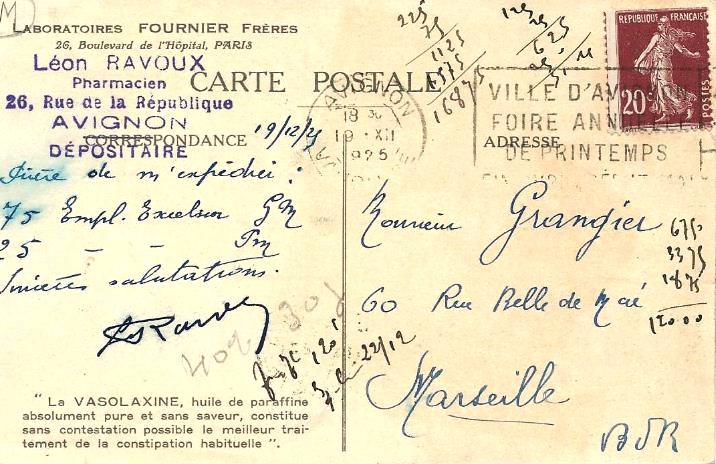 LABORATOIRES FOURNIER FRÈRES
26, Boulevard de l'Hôpital, PARIS
Léon RAVOUX
Pharmacien
26, Rue de la République
AVIGNON
DÉPOSITAIRE
CARTE POSTALE
CORRESPONDANCE
ADRESSE
RÉPUBLIQUE FRANÇAISE
20c
POSTES
AVIGNON
18 30
19 XII
1925
VILLE D'AVIGNON
FOIRE ANNUELLE
DE PRINTEMPS
19/12/25
Prière de m'expédier :
75 Empl. Excelsior GM
25 - - Pm
Sincères salutations.
Monsieur Grangier
60 Rue Belle de Maé
Marseille
BDR
225
75
1125
1575
16875
625
675
3375
1875
12000
22/12
"La VASOLAXINE, huile de paraffine
absolument pure et sans saveur, constitue
sans contestation possible le meilleur trai-
tement de la constipation habituelle".